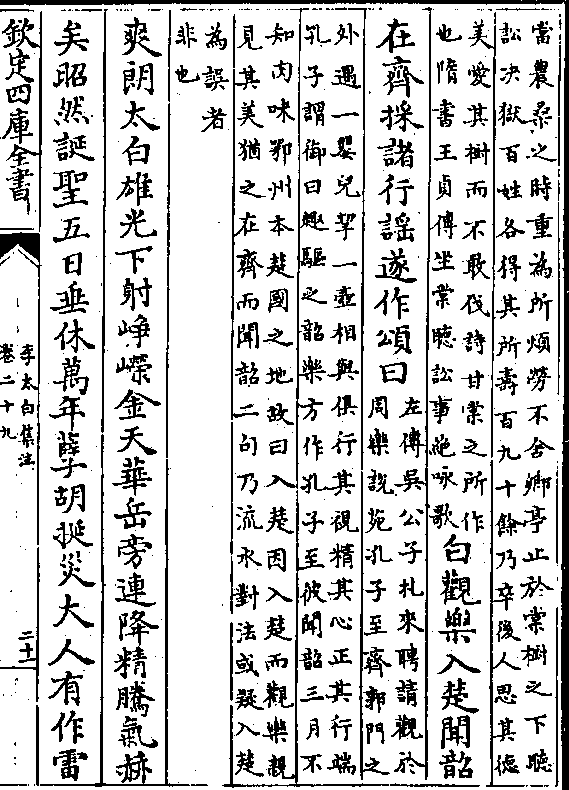 當農桑之時重為所煩勞不舍鄉亭止於棠樹之下聽
訟决獄百姓各得其所壽百九十餘乃卒後人思其徳
美愛其樹而不敢伐詩甘棠之所作
也隋書王貞傳坐棠聽訟事絶咏歌
白觀樂入楚聞韶
在齊採諸行謡遂作頌曰
左傳吴公子札來聘請觀於
周樂説苑孔子至齊郭門之
外遇一嬰兒挈一壺相與俱行其視精其心正其行端
孔子謂御曰趣驅之韶樂方作孔子至彼聞韶三月不
知肉味鄂州本楚國之地故曰入楚因入楚而觀樂親
見其美猶之在齊而聞韶二句乃流水對法或疑入楚
為誤者
非也
爽朗太白雄光下射崢嶸金天華岳旁連降精騰氣赫
矣昭然誕聖五日垂休萬年孽胡挻災大人有作雷
欽定四庫全書
李太白集注
卷二十九
二十一